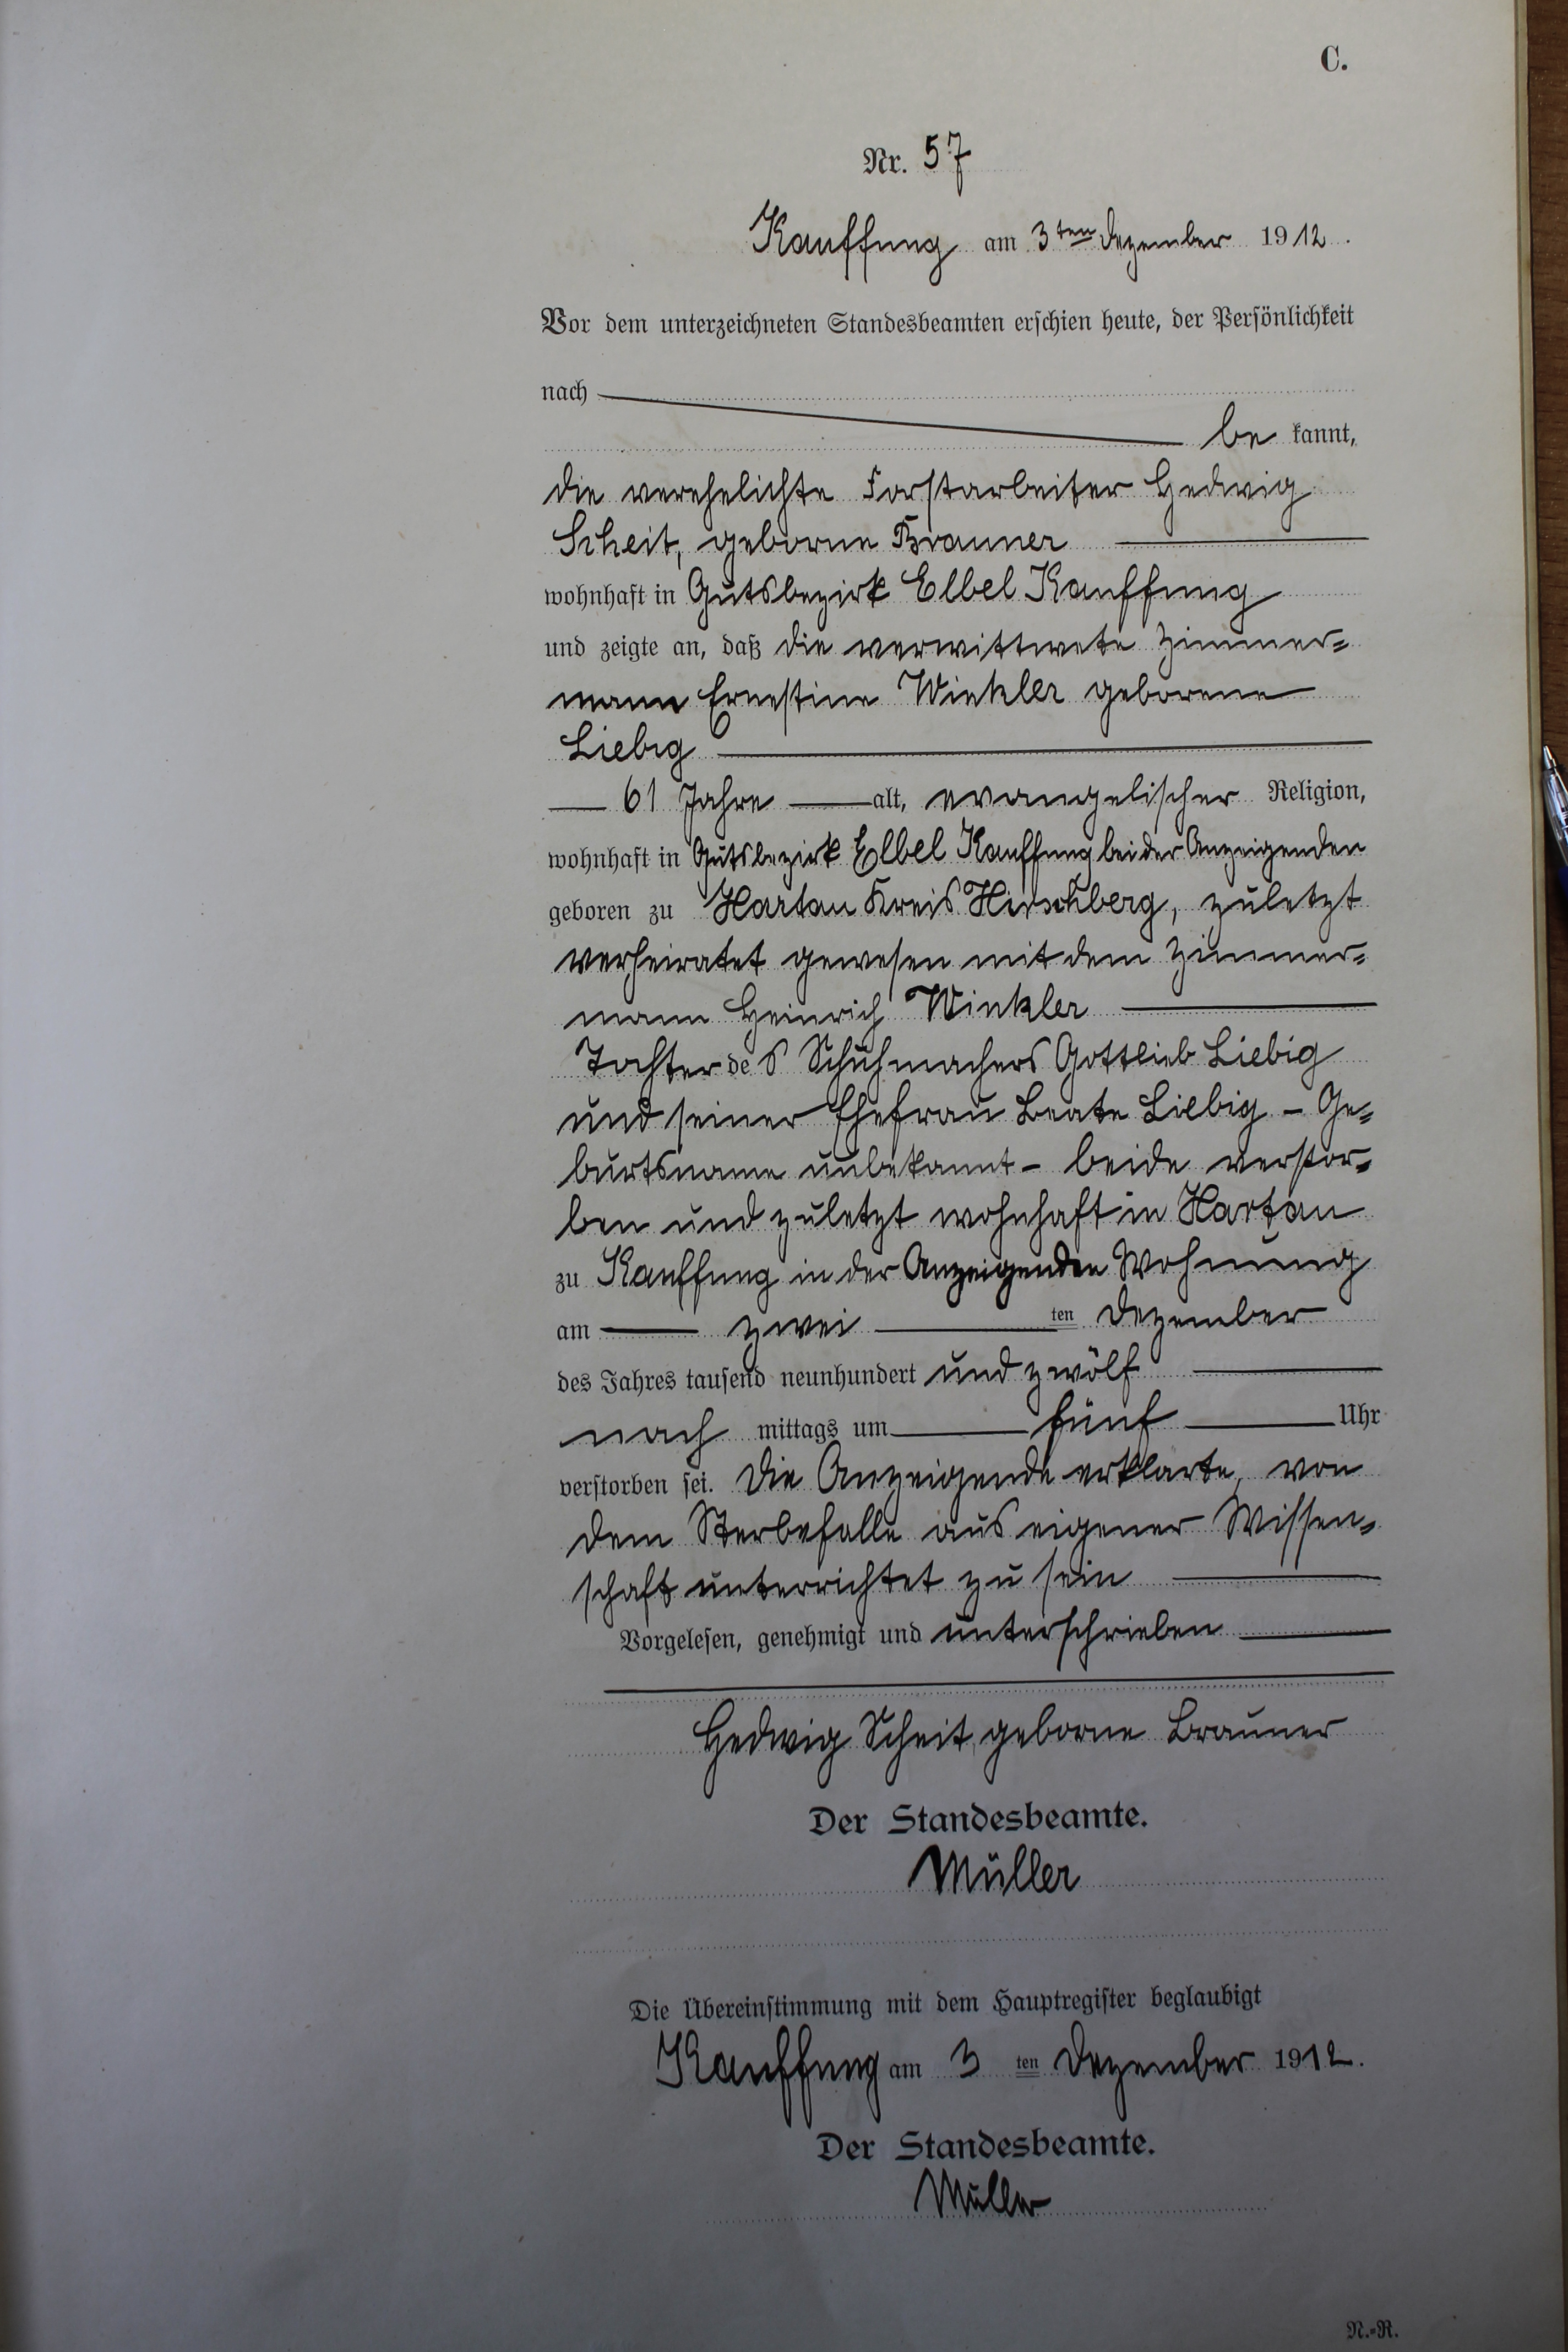 C.
Nr. 57
Kauffung am 3ten Dezember 1912.
Vor dem unterzeichneten Standesbeamten erschien heute, der Persönlichkeit
nach
be kannt,
die verehelichte Forstarbeiter Hedwig
Scheit, geborne Brauner
wohnhaft in Gutsbezirk Elbel Kauffung
und zeigte an, daß die verwittwete Zimmer=
mann Ernestine Winkler geborene
Liebig
61 Jahre alt, evangelischer Religion,
wohnhaft in Gutsbezirk Elbel Kauffung bei der Anzeigenden
geboren zu Hartau Kreis Hirschberg, zuletzt
verheiratet gewesen mit dem Zimmer=
mann Heinrich Winkler
Tochter des Schuhmachers Gottlieb Liebig
und seiner Ehefrau Beate Liebig – Ge=
burtsname unbekannt – beide verstor=
ben und zuletzt wohnhaft in Hartau
zu Kauffung in der Anzeigenden Wohnung
am zwei ten Dezember
des Jahres tausend neunhundert und zwölf
nach mittags um fünf Uhr
verstorben sei. Die Anzeigende erklärte, von
dem Sterbefalle aus eigener Wissen=
schaft unterrichtet zu sein
Vorgelesen, genehmigt und unterschrieben
Hedwig Scheit, geborne Brauner
Der Standesbeamte.
Müller
Die Übereinstimmung mit dem Hauptregister beglaubigt
Kauffung am 3 ten Dezember 1912.
Der Standesbeamte.
Müller
N.=R.